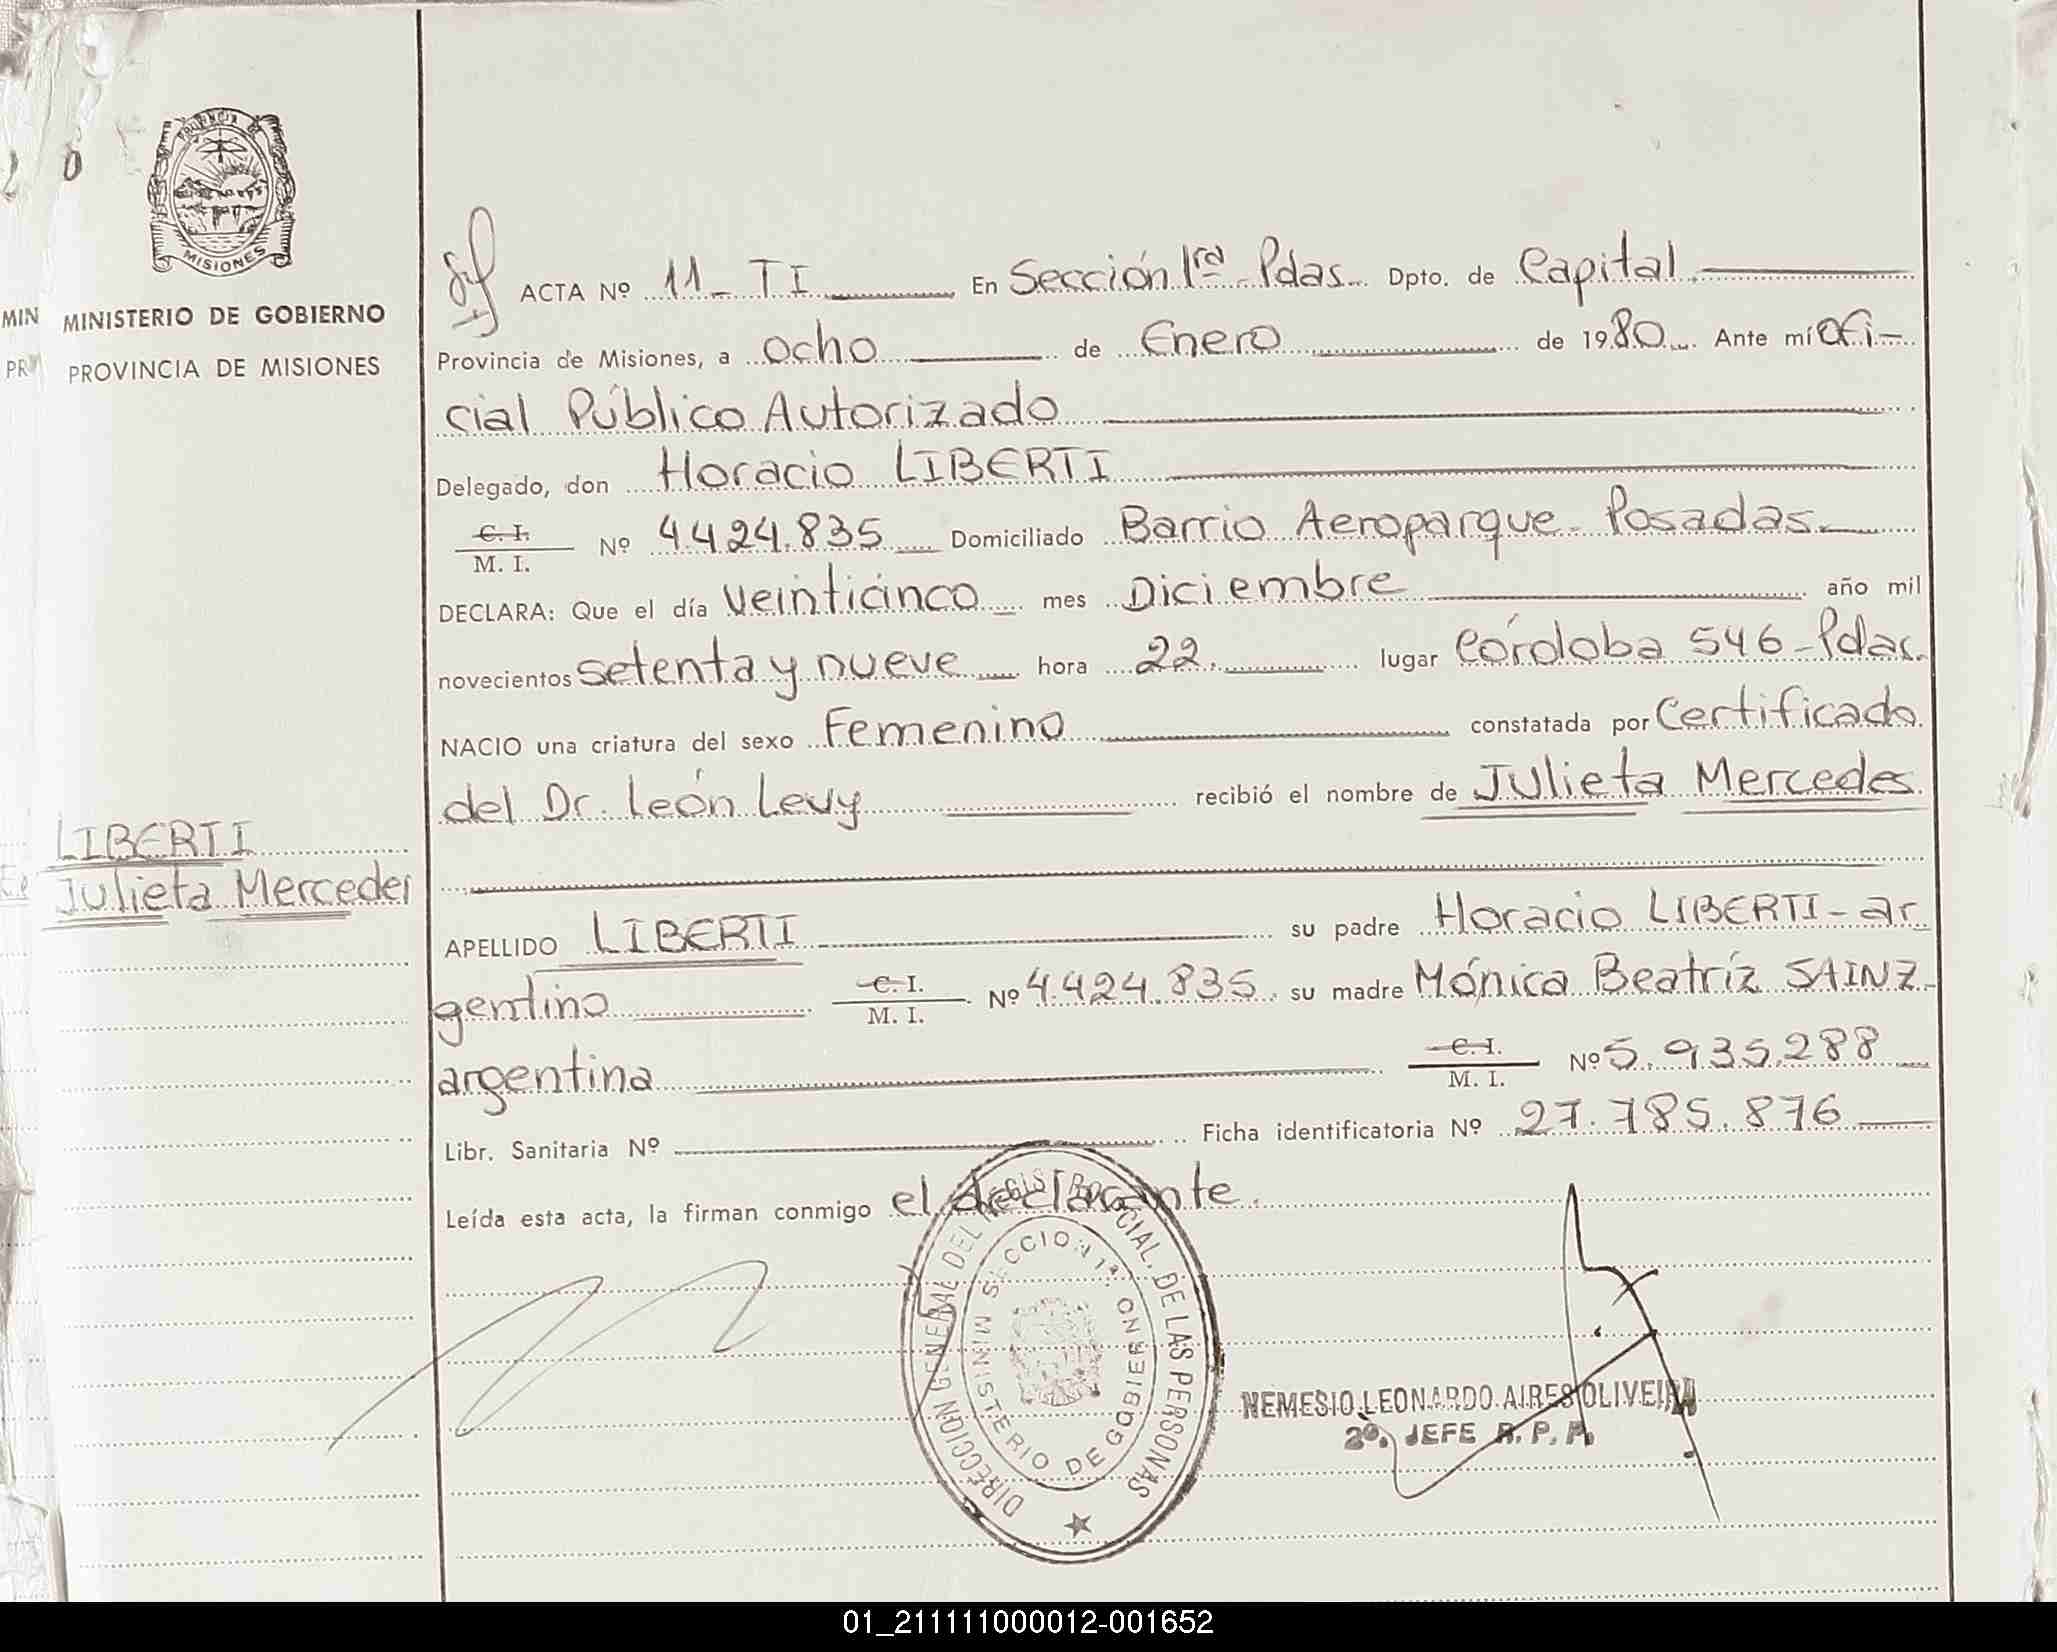 PROVINCIA DE
MISIONES
MIN MINISTERIO DE GOBIERNO
PR PROVINCIA DE MISIONES
ACTA Nº 11-TI En Sección 1ra Pdas. Dpto. de Capital
Provincia de Misiones, a ocho de Enero de 1980 Ante mí Ofi-
cial Público Autorizado
Delegado, don Horacio LIBERTI
C. I.
M. I. Nº 4.424.835 Domiciliado Barrio Aeroparque - Posadas.
DECLARA: Que el día Veinticinco mes Diciembre año mil
novecientos setenta y nueve hora 22. lugar Córdoba 546 - Pdas.
NACIO una criatura del sexo Femenino constatada por Certificado
del Dr. León Levy recibió el nombre de Julieta Mercedes
LIBERTI
Julieta Mercedes
APELLIDO LIBERTI su padre Horacio LIBERTI - ar
gentino C. I.
M. I. Nº 4.424.835. su madre Mónica Beatríz SAINZ -
argentina C. I.
M. I. Nº 5.935.288
Libr. Sanitaria Nº Ficha identificatoria Nº 27.785.876
Leída esta acta, la firman conmigo el declarante.
DIRECCION GENERAL DEL REGISTRO PCIAL. DE LAS PERSONAS
SECCION 1ª.
MINISTERIO DE GOBIERNO
NEMESIO LEONARDO AIRES OLIVEIRA
2º. JEFE R. P. P.
01_211111000012-001652